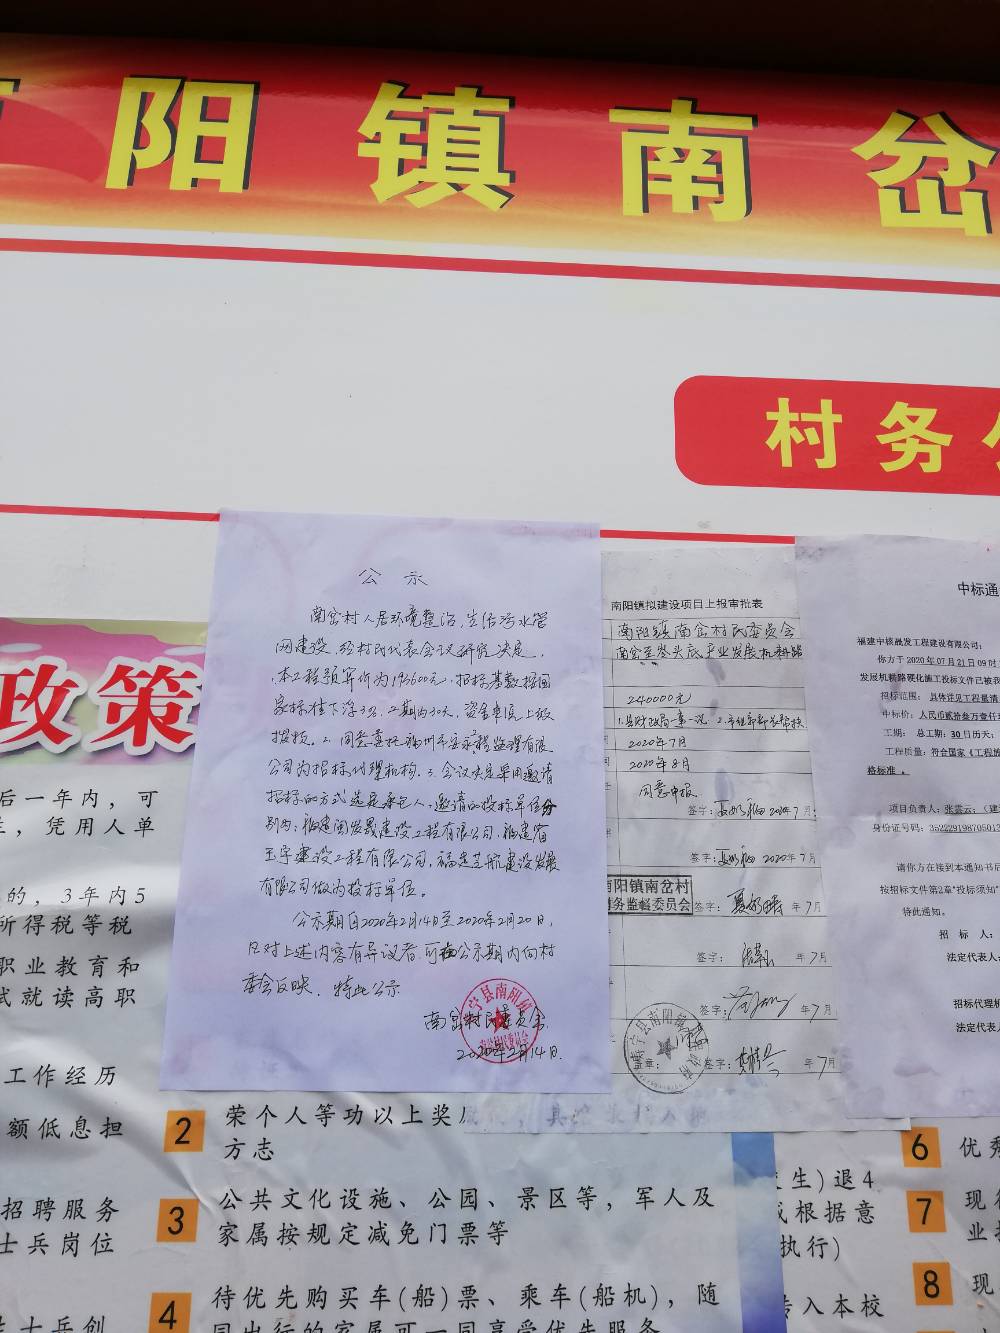 阳镇南岔
村务
政策
公示
南岔村人居环境整治,生活污水管
网建设,经村民代表会议研究决定,
本工程预算价为193600元,招标基数按国
家标准下浮3%,工期为30天,资金来源上级
拨款。2.同意委托福州市安永工程监理有限
公司为招标代理机构。3.会议决定采用邀请
招标的方式选定承包人,邀请的投标单位分
别为:福建闽发晟建设工程有限公司,福建省
玉宇建设工程有限公司,福建艺航建设发展
有限公司做为投标单位。
公示期自2020年2月14日至2020年2月20日,
凡对上述内容有异议者,可在公示期内向村
委会反映。特此公示
南岔村民委员会
2020年2月14日.
南阳镇拟建设项目上报审批表
南阳镇南岔村民委员会
240000元
2020年7月
2020年8月
同意申报
签字: 2020年7月
签字: 2020年7月
南阳镇南岔村
村务监督委员会
签字: 年7月
签字: 年7月
签字: 年7月
盖章: 签字: 年7月
中标通
福建中核晟发工程建设有限公司:
你方于2020年07月21日09时
发展机耕路硬化施工投标文件已被我
招标范围:具体详见工程量清
中标价:人民币贰拾叁万壹仟
工期: 总工期:30日历天;
工程质量:符合国家《工程施
格标准。
项目负责人:张芸云;(建
身份证号码:35222919870501
请你方在接到本通知书后
按招标文件第2章"投标须知"
特此通知。
招 标 人:
法定代表人:
招标代理机
法定代表人
后一年内,可
,凭用人单
的,3年内5
所得税等税
职业教育和
试就读高职
工作经历
额低息担
招聘服务
士兵岗位
士兵创
2 荣个人等功以上奖
方志
3 公共文化设施、公园、景区等,军人及
家属按规定减免门票等
4 待优先购买车(船)票、乘车(船机),随
同出行的家属可一同享受优先服务
生)退4
或根据意
执行)
转入本校
6 优秀
7 现役
业
8 现